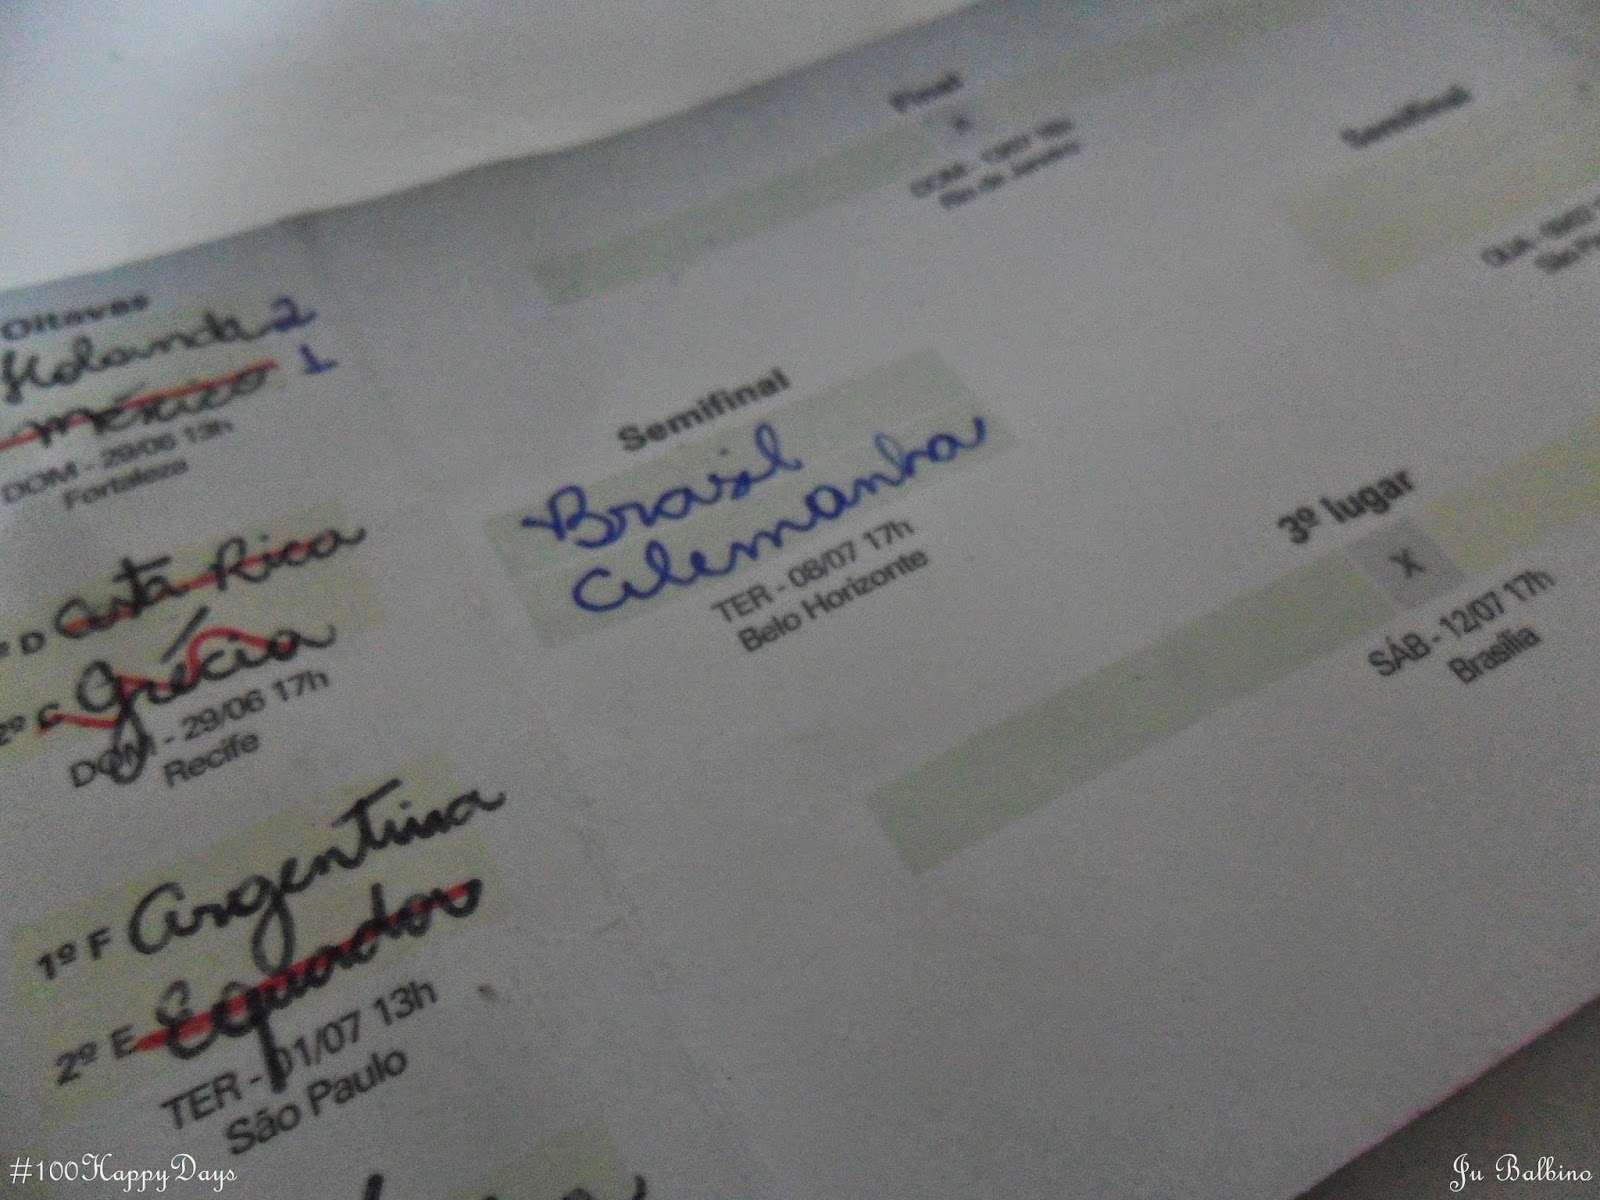 Oitavas
Holanda 2
México 1
DOM - 29/06 13h
Fortaleza
1º D Costa Rica
2º C Grécia
DOM - 29/06 17h
Recife
1º F Argentina
2º E Equador
TER - 01/07 13h
São Paulo
Semifinal
Brasil
Alemanha
TER - 08/07 17h
Belo Horizonte
Final
X
DOM - 13/07 16h
Rio de Janeiro
Semifinal
QUA - 09/07
São Pa
3º lugar
X
SÁB - 12/07 17h
Brasília
#100HappyDays
Ju Balbino